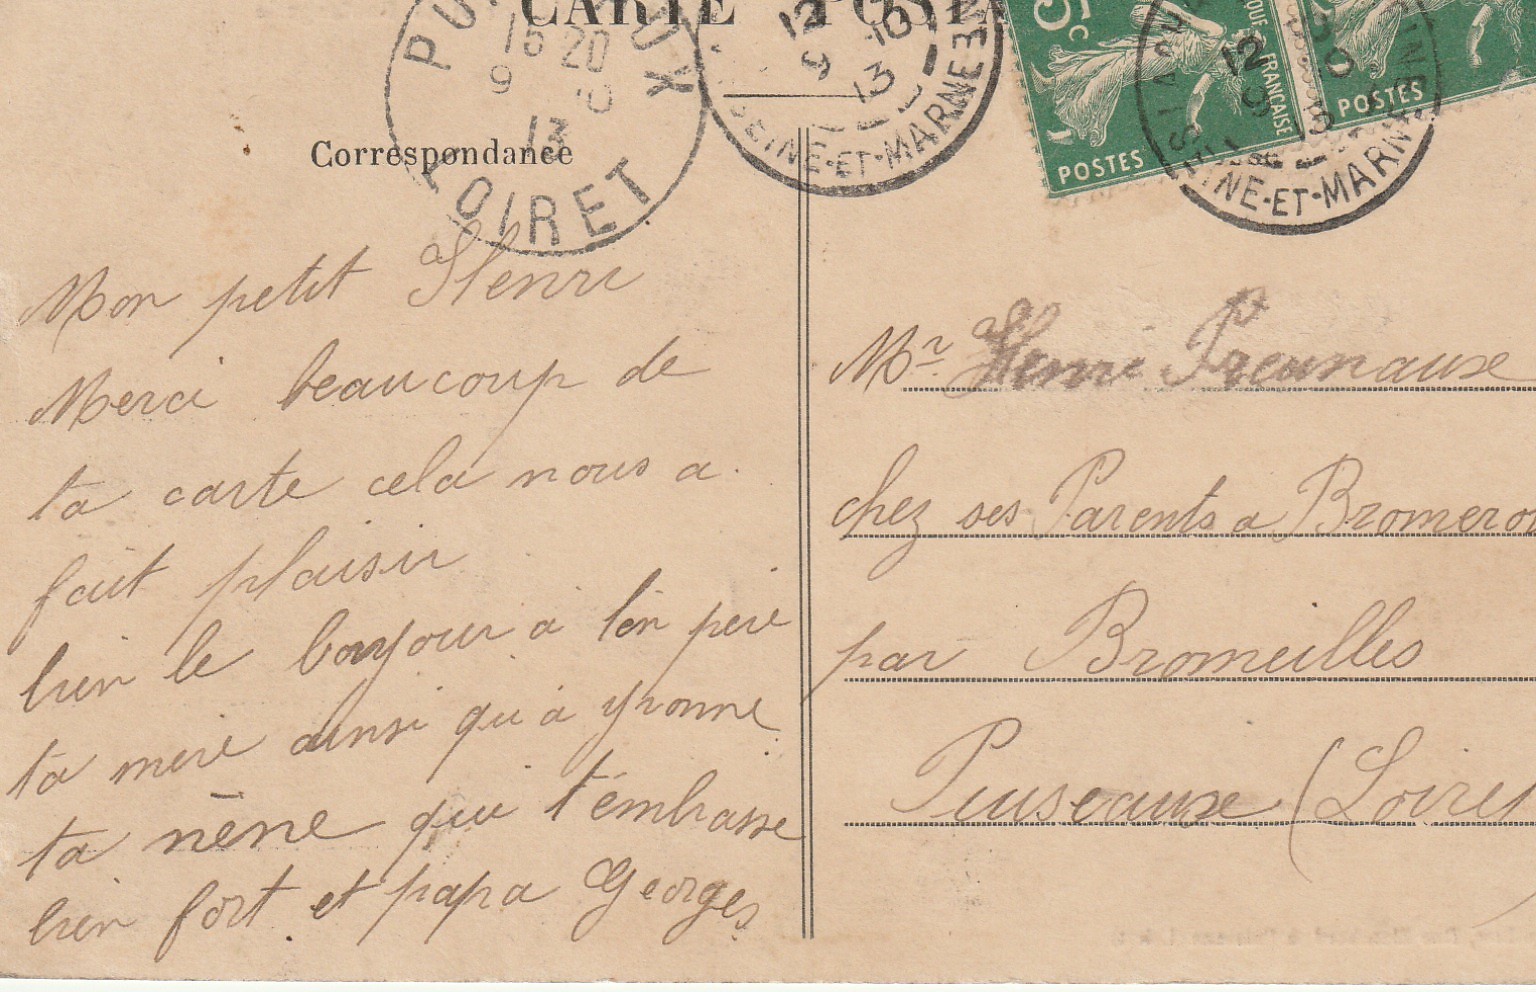 CARTE POSTA
15 20
9 10
13
LOIRET
12
9 10
13
SEINE-ET-MARNE
5c
FRANÇAISE
POSTES
POSTES
12
9
13
SEINE-ET-MARNE
Correspondance
Mon petit Henri
Merci beaucoup de
ta carte cela nous a
fait plaisir
bien le bonjour à ton père
ta mère ainsi qu'à yvonne
ta nène qui t'embrasse
bien fort et papa Georges
Mr. Henri
chez ses Parents a
par Bromeilles
Puiseaux (Loiret